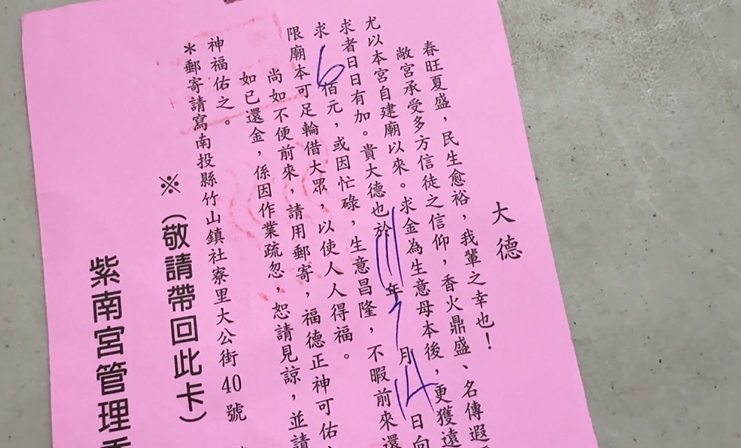 大德
春旺夏盛，民生愈裕，我輩之幸也！
敝宮承受多方信徒之信仰，香火鼎盛、名傳遐
尤以本宮自建廟以來。求金為生意母本後，更獲遠
求者日日有加。貴大德也於111年7月14日向
求6佰元，或因忙碌，生意昌隆，不暇前來還
限廟本可足輪借大眾，以使人人得福。
尚如不便前來，請用郵寄，福德正神可佑
如已還金，係因作業疏忽，恕請見諒，並請
神福佑之。
＊郵寄請寫南投縣竹山鎮社寮里大公街40號
※（敬請帶回此卡）
紫南宮管理